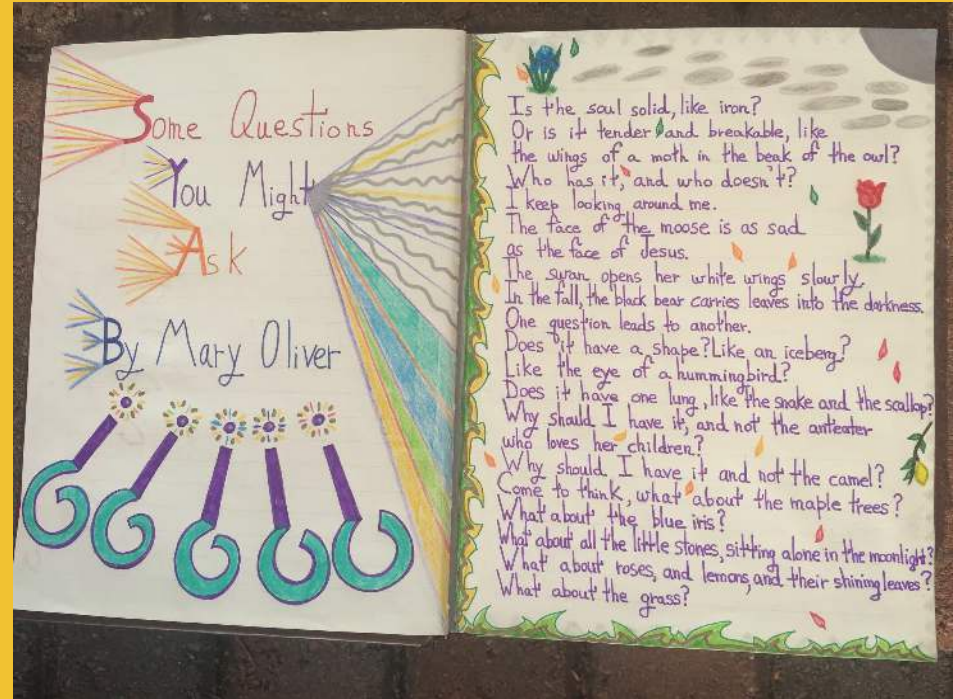 Some Questions
You Might
Ask
By Mary Oliver
Is the soul solid, like iron?
Or is it tender and breakable, like
the wings of a moth in the beak of the owl?
Who has it, and who doesn't?
I keep looking around me.
The face of the moose is as sad
as the face of Jesus.
The swan opens her white wings slowly.
In the fall, the black bear carries leaves into the darkness.
One question leads to another.
Does it have a shape? Like an iceberg?
Like the eye of a hummingbird?
Does it have one lung, like the snake and the scallop?
Why should I have it, and not the anteater
who loves her children?
Why should I have it and not the camel?
Come to think, what about the maple trees?
What about the blue iris?
What about all the little stones, sitting alone in the moonlight?
What about roses, and lemons, and their shining leaves?
What about the grass?